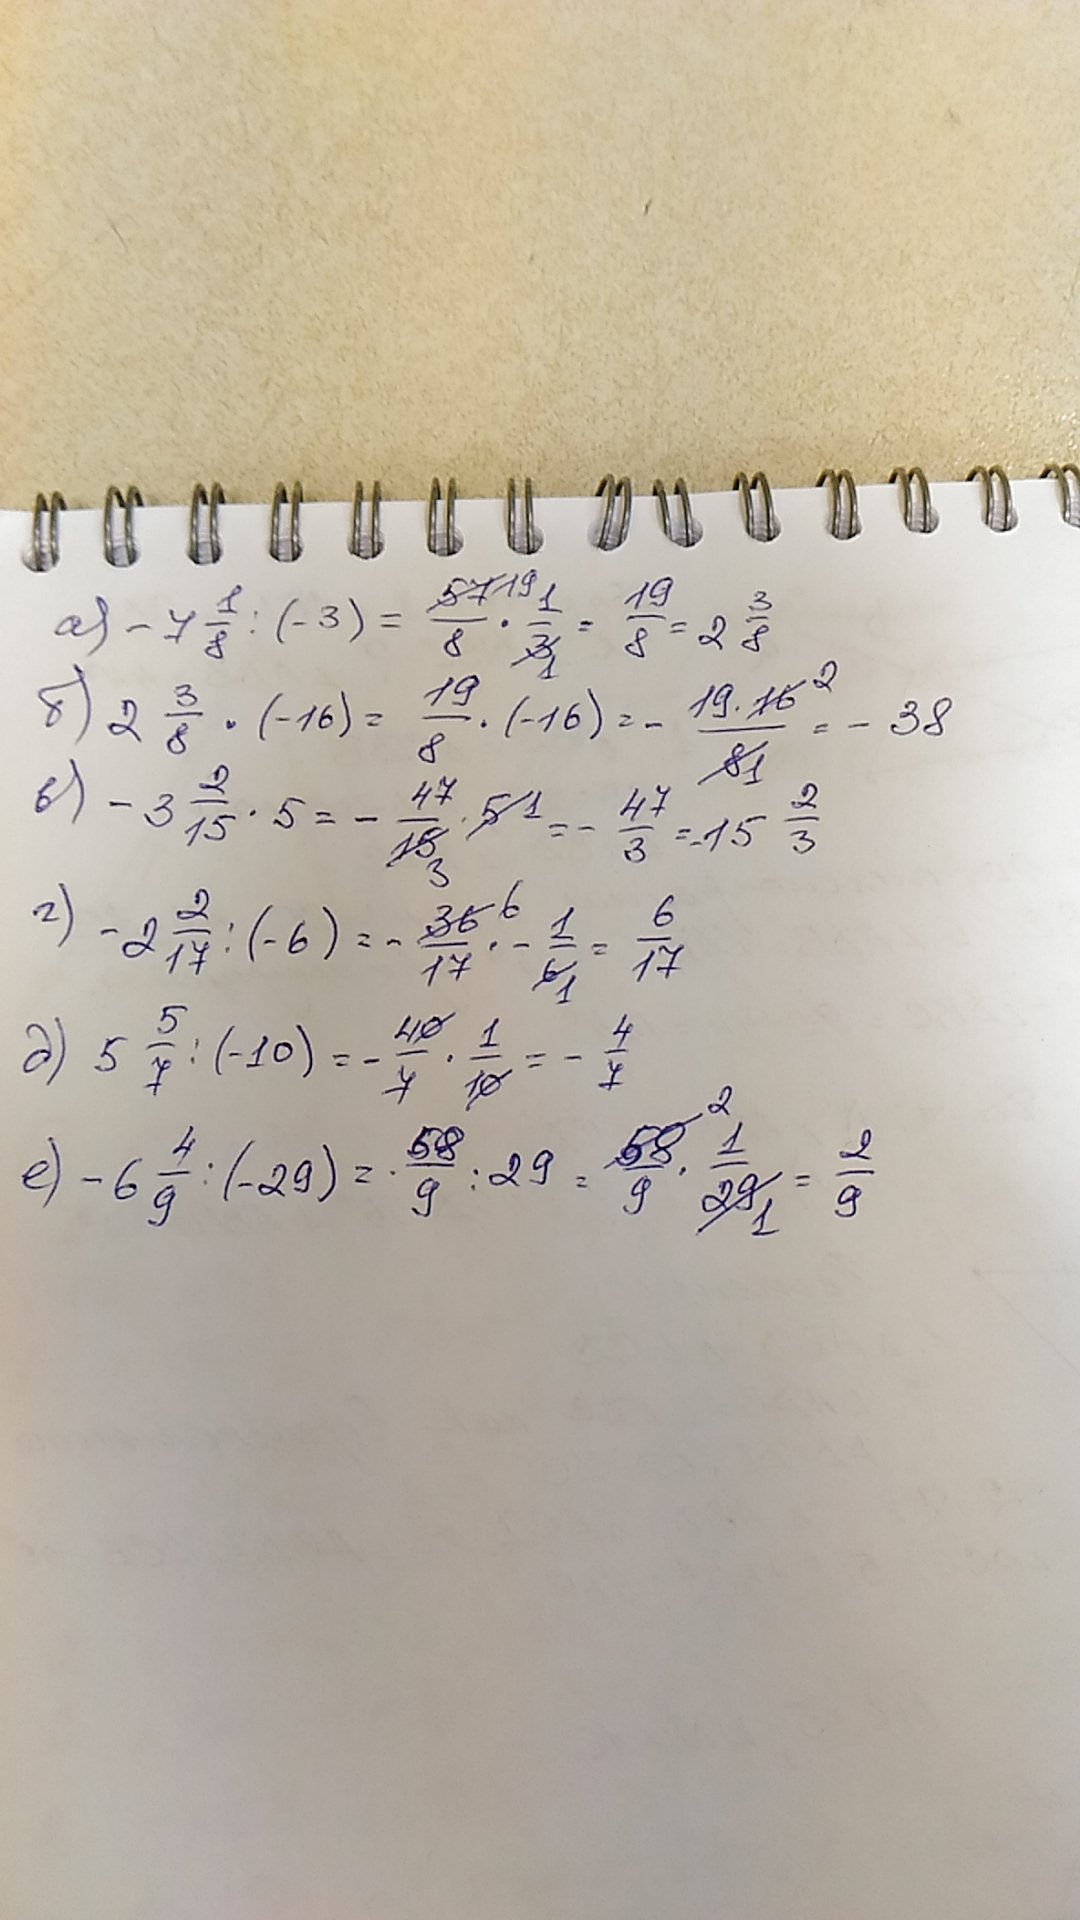 а) - 7 1/8 : (-3) = 57 19/8 · 1/3 1 = 19/8 = 2 3/8
б) 2 3/8 · (-16) = 19/8 · (-16) = - 19 · 16 2/8 1 = - 38
в) - 3 2/15 · 5 = - 47/15 3 · 5 1 = - 47/3 = -15 2/3
г) - 2 2/17 : (-6) = - 36 6/17 · - 1/6 1 = 6/17
д) 5 5/7 : (-10) = - 40/7 · 1/10 = - 4/7
е) - 6 4/9 : (-29) = 58/9 : 29 = 58 2/9 · 1/29 1 = 2/9